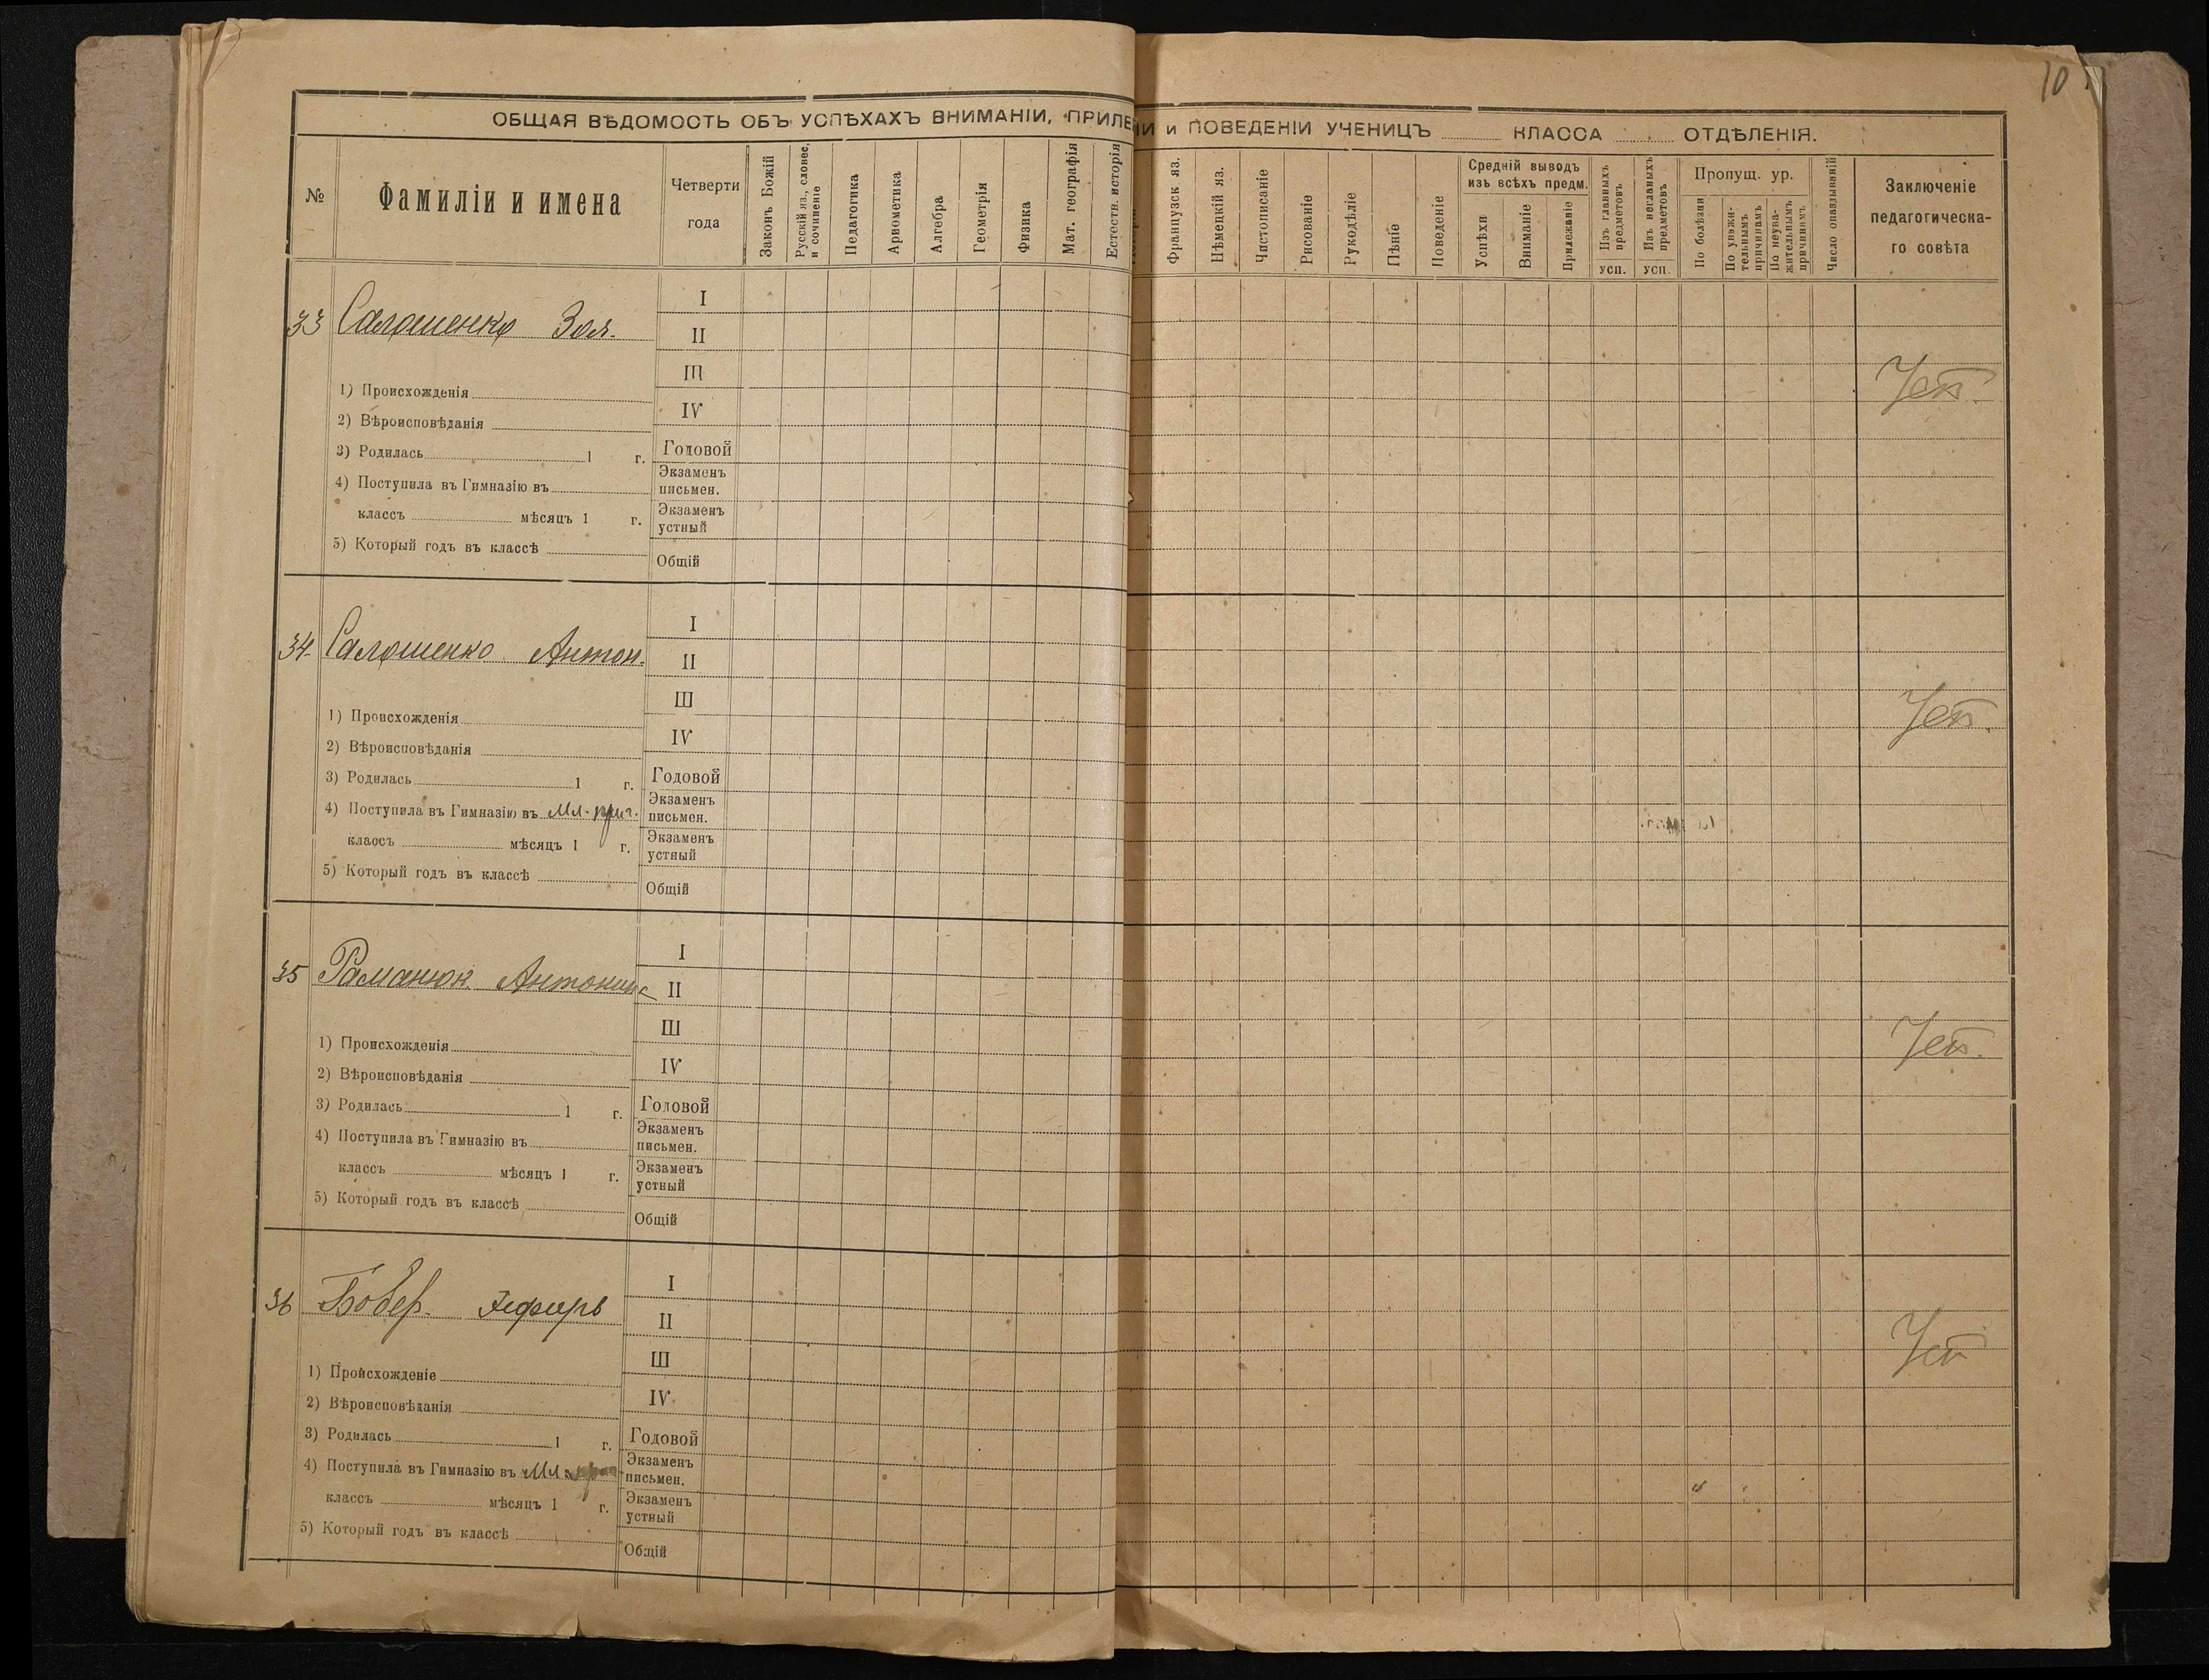 10
ОБЩАЯ ВѢДОМОСТЬ ОБЪ УСПѢХАХЪ ВНИМАНІИ, ПРИЛЕ
НІИ и ПОВЕДЕНІИ УЧЕНИЦЪ КЛАССА ОТДѢЛЕНІЯ.
№
Фамиліи и имена
Четверти
года
Законъ Божій
Русскій яз., словес.
и сочиненіе
Педагогика
Ариѳметика
Алгебра
Геометрія
Физика
Мат. географія
Естеств. исторія
Французск яз.
Нѣмецкій яз.
Чистописаніе
Рисованіе
Рукодѣліе
Пѣніе
Поведеніе
Средній выводъ
изъ всѣхъ предм.
Успѣхи
Вниманіе
Прилежаніе
Изъ главныхъ
предметовъ
усп.
Изъ неглавныхъ
предметовъ
усп.
Пропущ. ур.
По болѣзни
По уважи-
тельнымъ
причинамъ
По неува-
жительнымъ
причинамъ
Число опаздываній
Заключеніе
педагогическа-
го совѣта
33 Салошенко Зоя.
1) Происхожденія
2) Вѣроисповѣданія
3) Родилась 1 г.
4) Поступила въ Гимназію въ
классъ мѣсяцъ 1 г.
5) Который годъ въ классѣ
I
II
III
IV
Годовой
Экзаменъ
письмен.
Экзаменъ
устный
Общій
34. Салошенко Антон.
1) Происхожденія
2) Вѣроисповѣданія
3) Родилась 1 г.
4) Поступила въ Гимназію въ Мл. приг.
классъ мѣсяцъ 1 г.
5) Который годъ въ классѣ
I
II
III
IV
Годовой
Экзаменъ
письмен.
Экзаменъ
устный
Общій
35 Романюк Антонина
1) Происхожденія
2) Вѣроисповѣданія
3) Родилась 1 г.
4) Поступила въ Гимназію въ
классъ мѣсяцъ 1 г.
5) Который годъ въ классѣ
I
II
III
IV
Годовой
Экзаменъ
письмен.
Экзаменъ
устный
Общій
36 Бобер.
1) Происхожденіе
2) Вѣроисповѣданія
3) Родилась 1 г.
4) Поступила въ Гимназію въ Мл.
классъ мѣсяцъ 1 г.
5) Который годъ въ классѣ
I
II
III
IV
Годовой
Экзаменъ
письмен.
Экзаменъ
устный
Общій